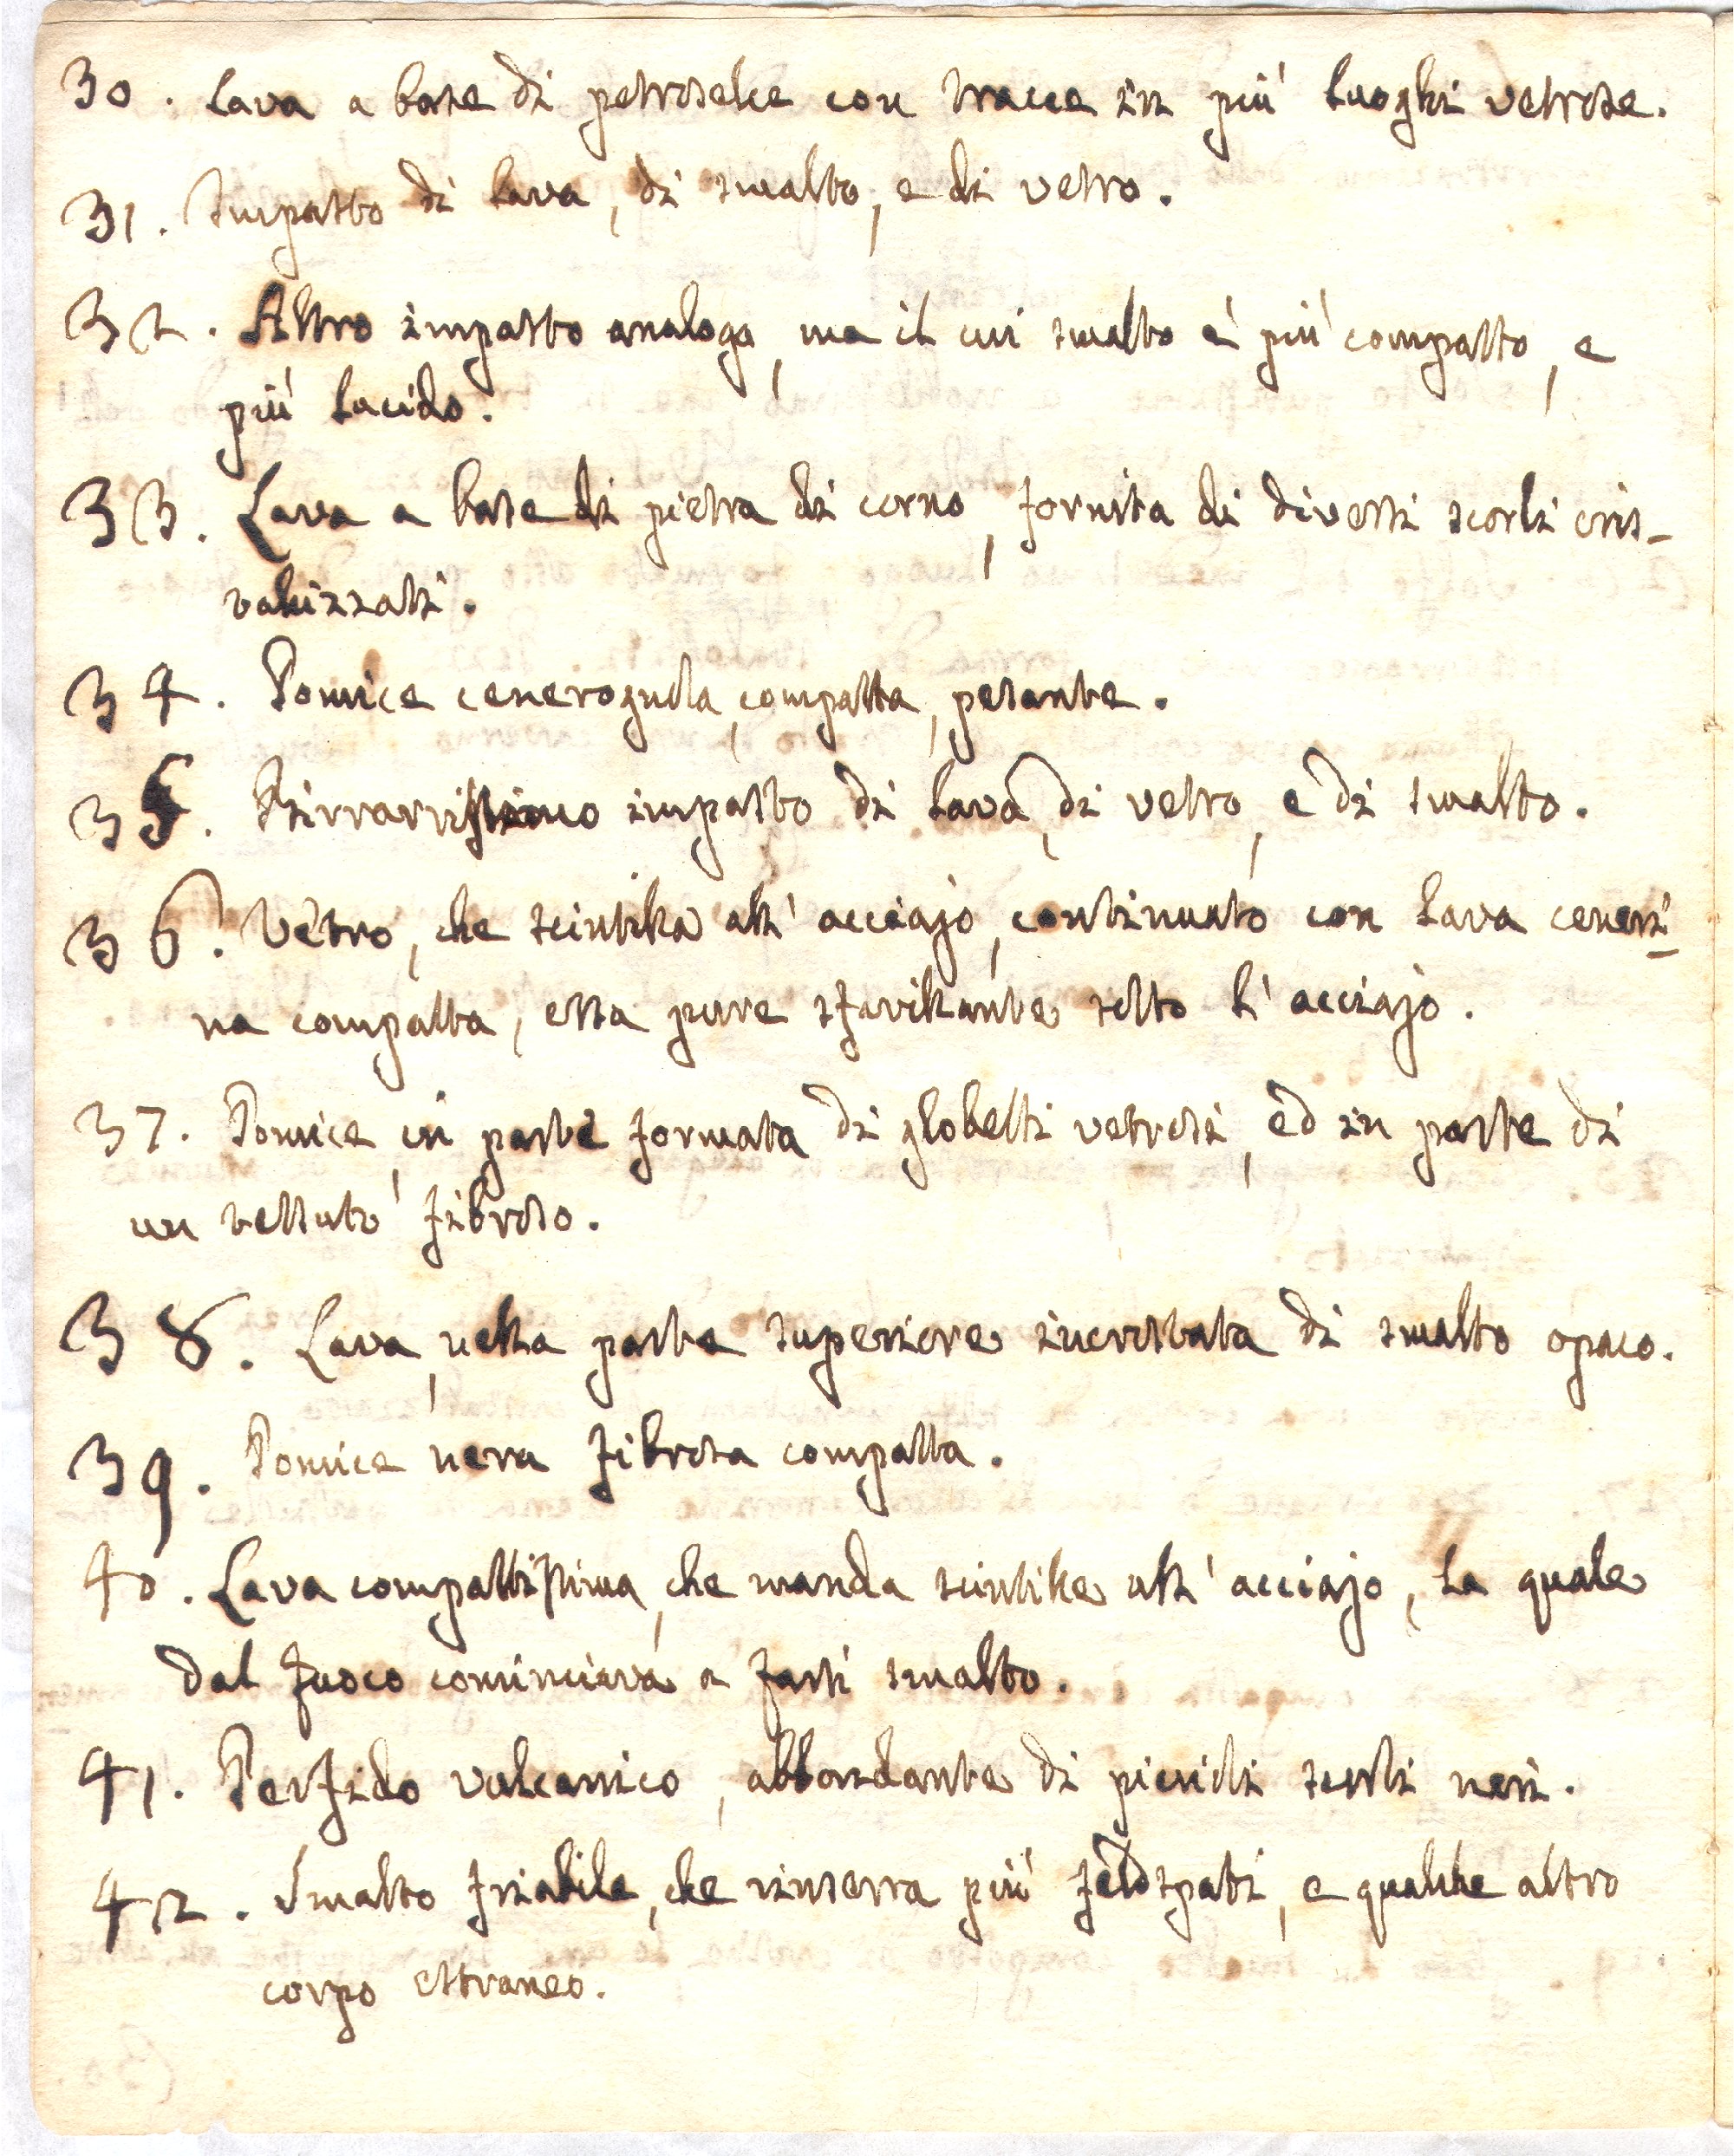 30. Lava a base di petroselce con tracce in più luoghi vetrose.
31. Impasto di lava, di smalto, e di vetro.
32. Altro impasto analogo, ma il cui smalto è più compatto, e
più lucido.
33. Lava a base di pietra di corno, fornita di diversi scorli cris-
talizzati.
34. Pomice cenerognola, compatta, pesante.
35. Bizzarrissimo impasto di lava, di vetro, e di smalto.
36. Vetro, che scintilla all'acciajo, continuato con lava ceneri-
na compatta, essa pure sfavillante sotto l'acciajo.
37. Pomice, in parte formata di globetti vetrosi, ed in parte di
un tessuto fibroso.
38. Lava, nella parte superiore incrostata di smalto opaco.
39. Pomice nera fibrosa compatta.
40. Lava compattissima, che manda scintille all'acciajo, la quale
dal fuoco cominciava a farsi smalto.
41. Porfido vulcanico, abbondante di piccioli scorli neri.
42. Smalto friabile, che rinserra più feldspati, e qualche altro
corpo estraneo.